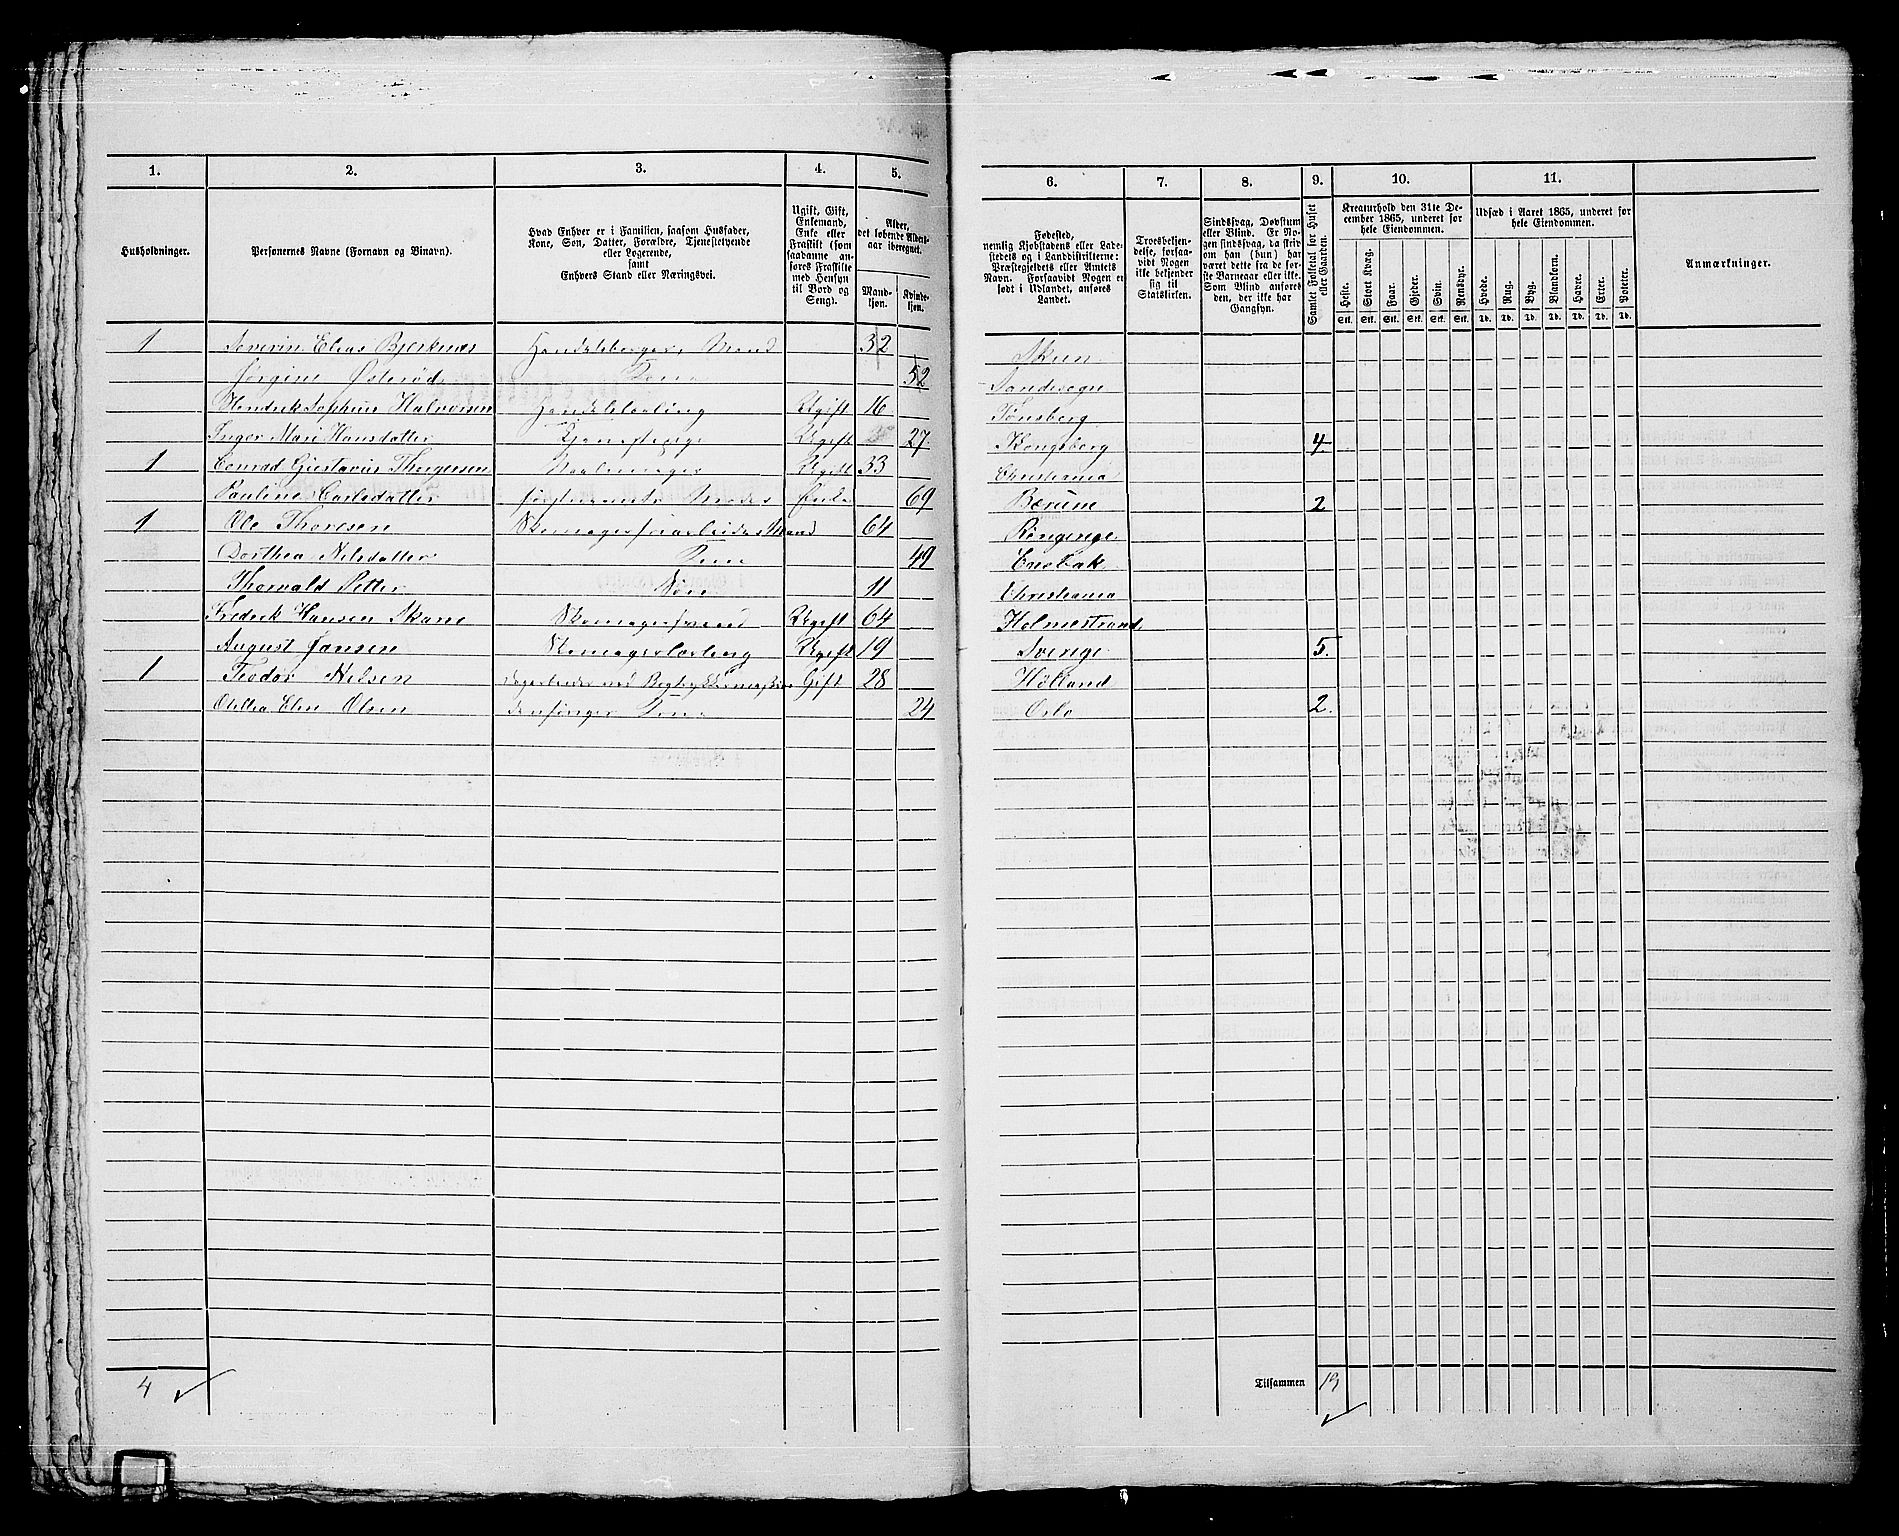 1. 2. 3. 4. 5. 6. 7. 8. 9. 10. 11.
Husholdninger.
Personernes Navne (Fornavn og Binavn).
Hvad Enhver er i Familien, saasom Husfader,
Kone, Søn, Datter, Forældre, Tjenestetyende
eller Logerende,
samt
Enhvers Stand eller Næringsvei.
Ugift, Gift,
Enkemand,
Enke eller
Fraskilt (som
saadanne an-
føres Fraskilte
med Hensyn
til Bord og
Seng).
Alder,
det løbende Alders-
aar iberegnet.
Mand-
kjøn.
Kvinde-
kjøn.
Fødested,
nemlig Kjøbstadens eller Lade-
stedets og i Landdistrikterne:
Præstegjeldets eller Amtets
Navn. Forsaavidt Nogen er
født i Udlandet, anføres
Landet.
Troesbekjen-
delse, forsaa-
vidt Nogen
ikke bekjender
sig til
Statskirken.
Sindssvag, Døvstum
eller Blind. Er No-
gen sindssvag, da skriv
om han (hun) har
været dette fra de før-
ste Barneaar eller ikke.
Som Blind anføres
den, der ikke har
Gangsyn.
Samlet Folketal for Huset
eller Gaarden.
Kreaturhold den 31te De-
cember 1865, underet for
hele Eiendommen.
Heste. Stort Kvæg. Faar. Gjeder. Svin. Rensdyr.
Stk. Stk. Stk. Stk. Stk. Stk.
Udsæd i Aaret 1865, underet for
hele Eiendommen.
Hvede. Rug. Byg. Blandkorn. Havre. Erter. Poteter.
Td. Td. Td. Td. Td. Td. Td.
Anmærkninger.
1 Severin Elias Bjerknes Handelsborger, Mand 32 Skien
Jørgine Østerød Kone 52 Sandesogn
Hendrik Sophus Halvorsen Handelslærling Ugift 16 Tønsberg
Inger Mari Hansdatter Ugift 27 Kongsberg 4
1 Conrad Gustavus Thorgersen Ugift 33 Christiania
Pauline Carlsdatter Moder Enke 69 Bærum 2
1 Ole Thoresen Mand 64 Ringerige
Dorthea Nilsdatter Kone 49 Enebak
Thorvald Petter Søn 11 Christiania
Fredrik Hansen Skane Skomagersvend Ugift 64 Holmestrand
August Jansen Skomagerlærling Ugift 19 Sverige 5
1 Teodor Nilsen Gift 28 Hølland
Elen Olsen Kone 24 Oslo 2
4
Tilsammen 13